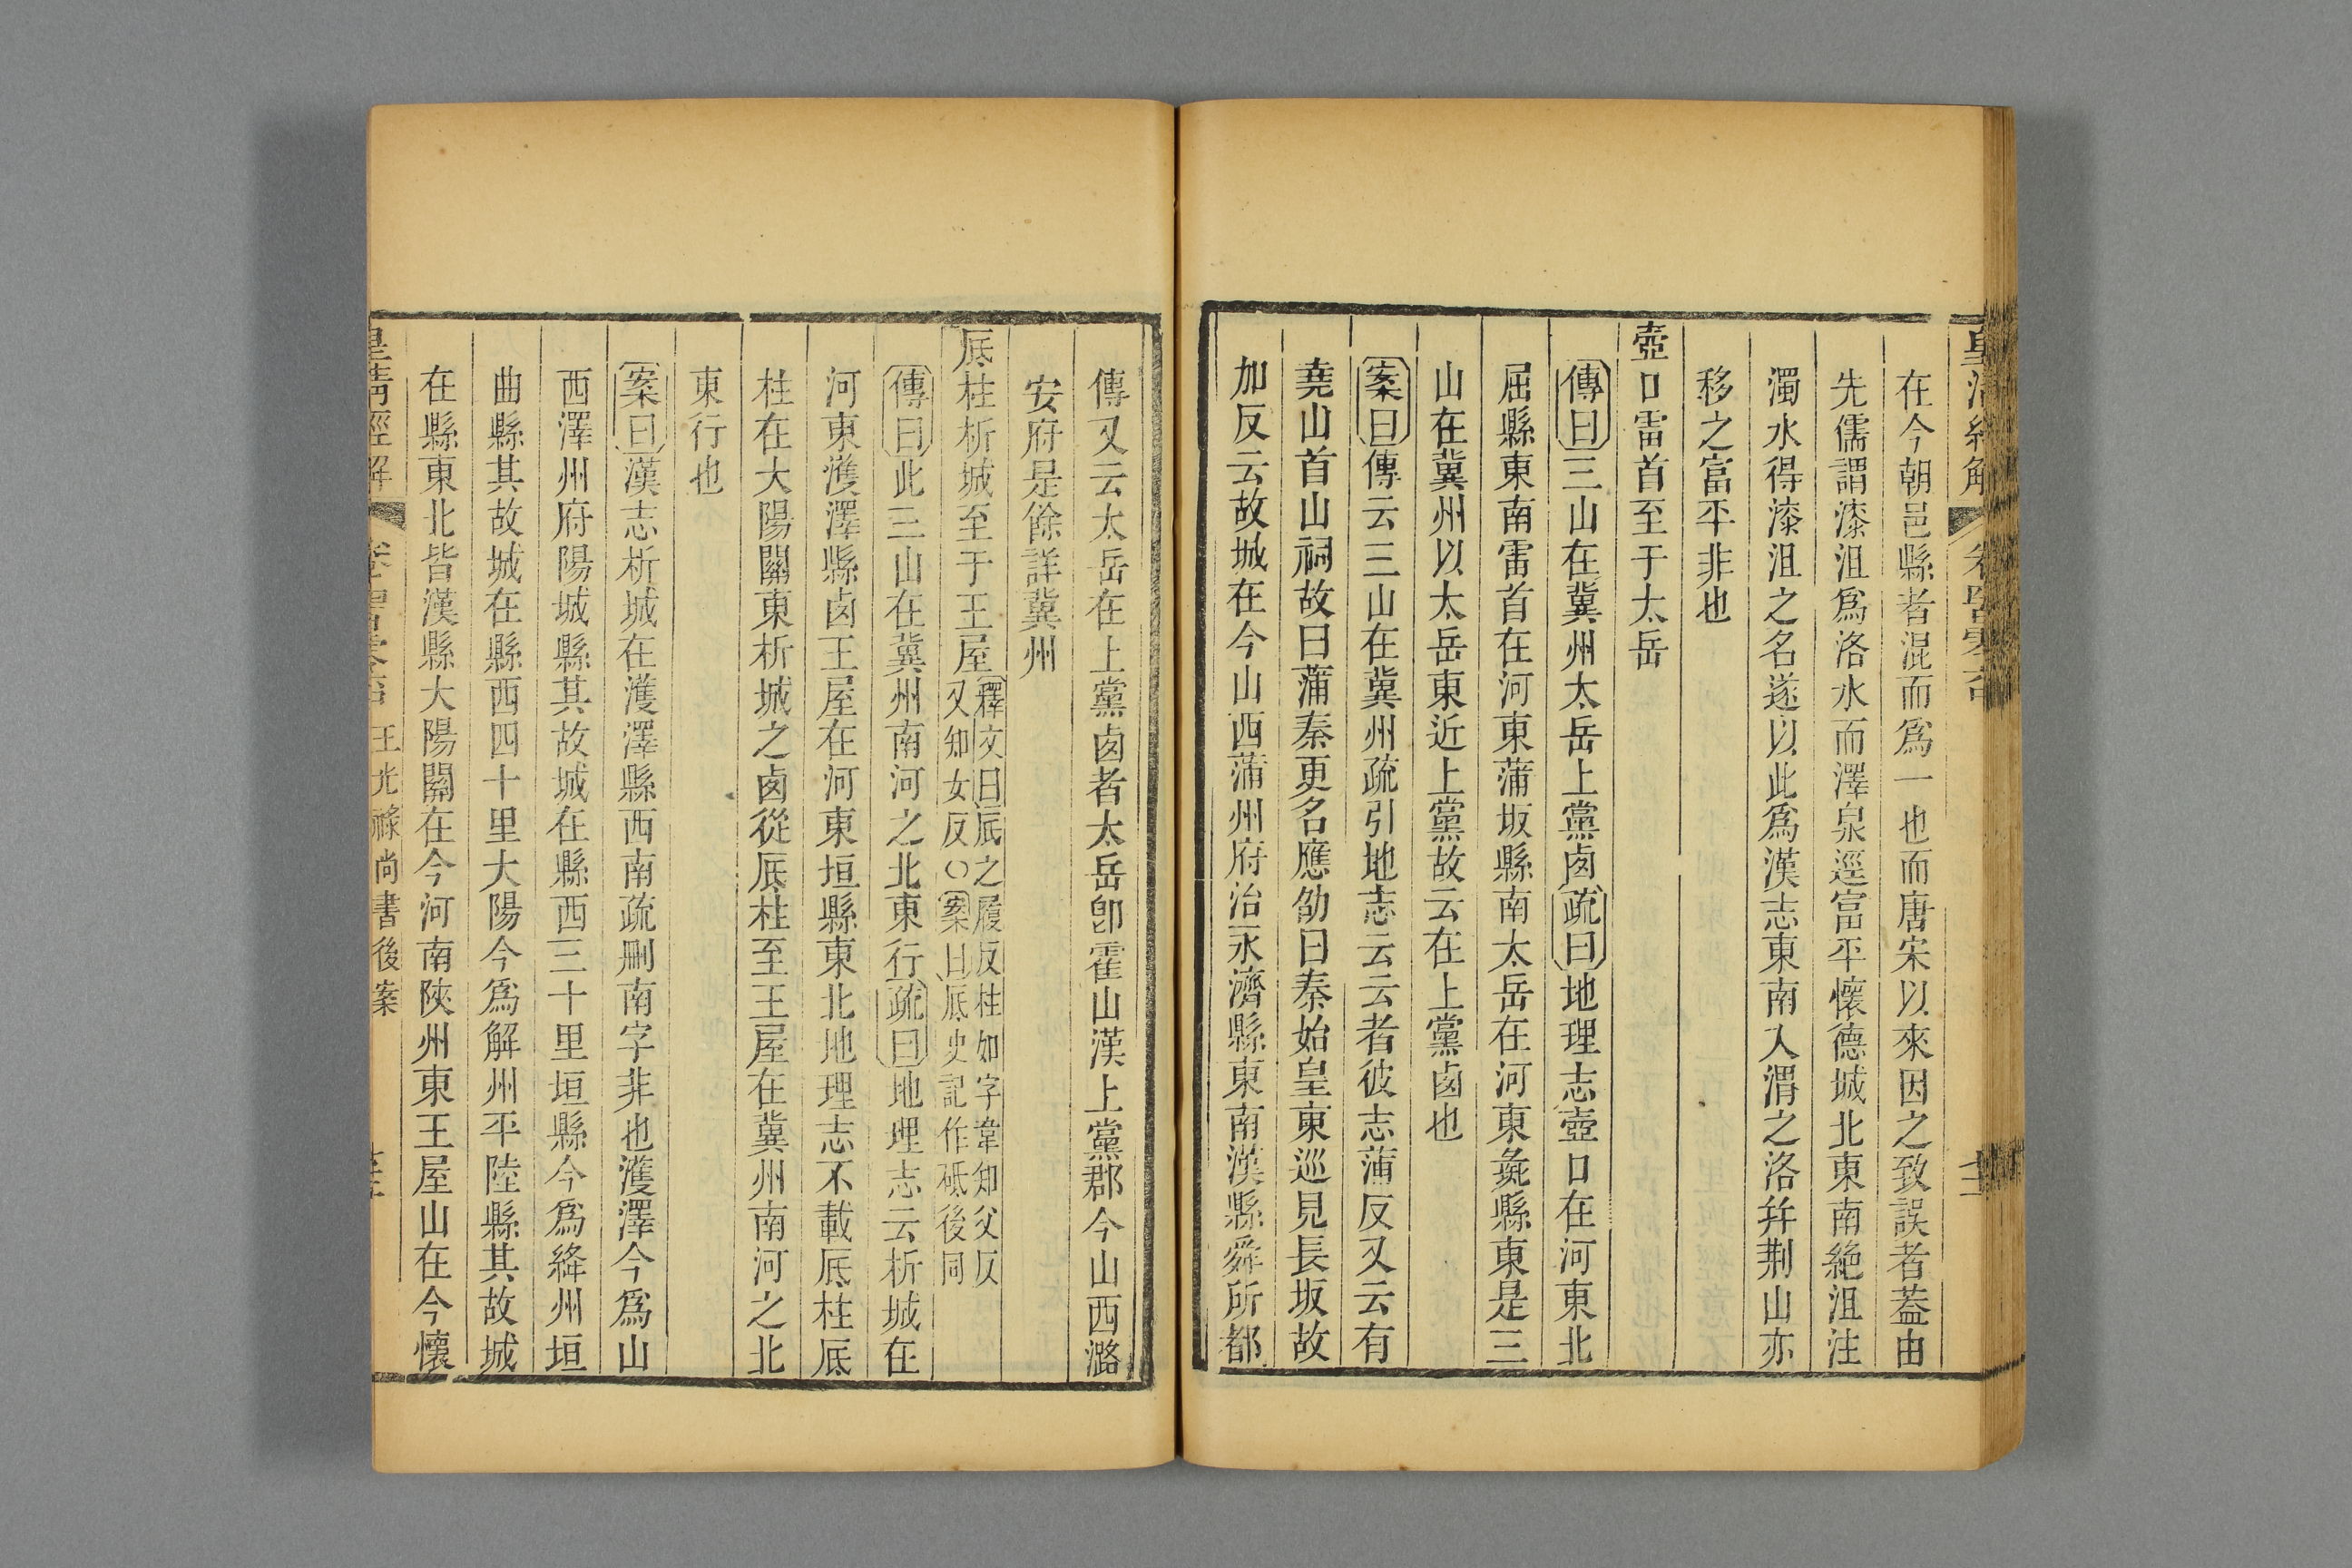 皇清經解
在今朝邑縣者混而爲一也而唐宋以來因之致誤者葢由
先儒謂漆沮爲洛水而澤泉逕富平懷德城北東南絶沮注
濁水得漆沮之名遂以此爲漢志東南入渭之洛幷荆山亦
移之富平非也
壺口雷首至于太岳
傳曰三山在冀州太岳上黨卤疏曰地理志壺口在河東北
屈縣東南雷首在河東蒲坂縣南太岳在河東彘縣東是三
山在冀州以太岳東近上黨故云在上黨卤也
案曰傳云三山在冀州疏引地志云云者彼志蒲反又云有
堯山首山祠故曰蒲秦更名應劭曰秦始皇東巡見長坂故
加反云故城在今山西蒲州府治永濟縣東南漢縣舜所都
傳又云太岳在上黨卤者太岳卽霍山漢上黨郡今山西潞
安府是餘詳冀州
厎柱析城至于王屋釋文曰厎之履反柱如字韋知父反
又知女反○案曰厎史記作砥後同
傳曰此三山在冀州南河之北東行疏曰地理志云析城在
河東濩澤縣卤王屋在河東垣縣東北地理志不載厎柱厎
柱在大陽關東析城之卤從厎柱至王屋在冀州南河之北
東行也
案曰漢志析城在濩澤縣西南疏刪南字非也濩澤今爲山
西澤州府陽城縣其故城在縣西三十里垣縣今爲絳州垣
曲縣其故城在縣西四十里大陽今爲解州平陸縣其故城
在縣東北皆漢縣大陽關在今河南陝州東王屋山在今懷
皇清經解
王光祿尚書後案